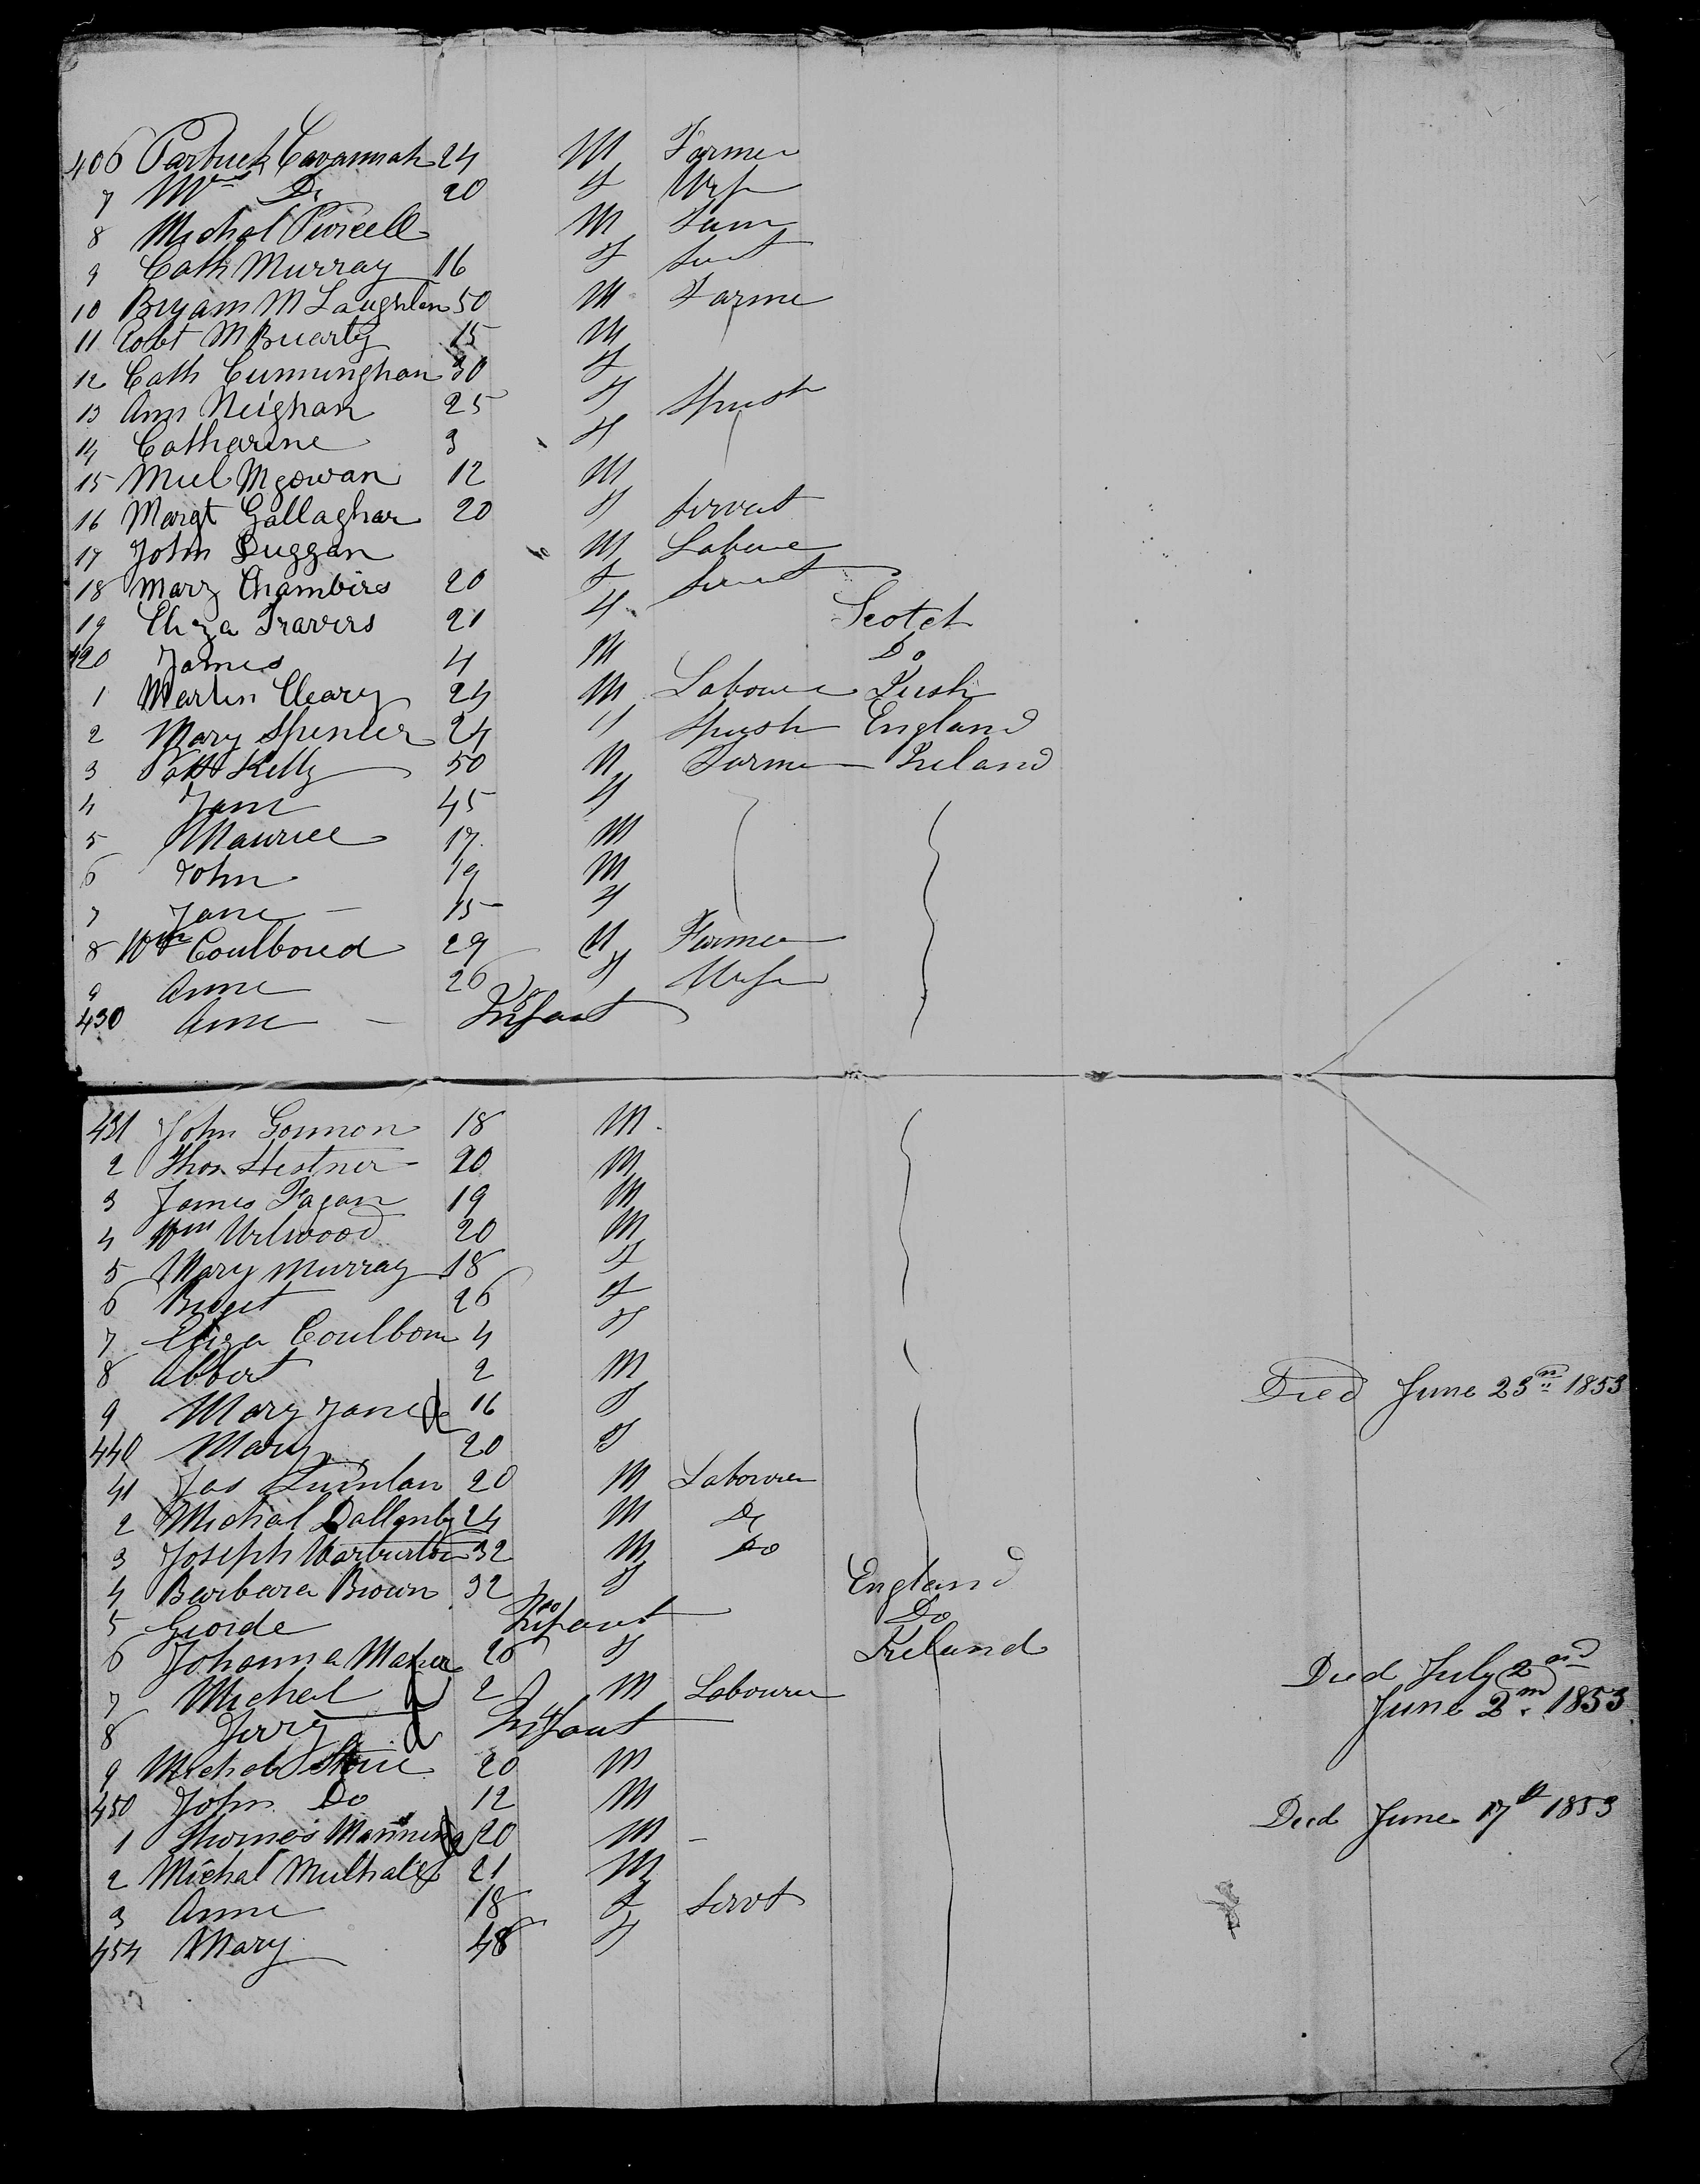 406 Patrick Cavannah 24 M Farmer
7 Mrs Do 20 F Wife
8 Michal Purcell M Farm
9 Cath Murray 16 F Sert
10 Bryam McLaughlen 50 M Farme
11 Robt 15 M
12 Cath Cunninghan 30 F
13 Ann Neighan 25 F Spinst
14 Catharine 3 F
15 Mcgowan 12 M
16 Margt Gallaghar 20 F Servat
17 John Duggan M Laboue
18 Mary Chambirs 20 F Servant
19 Eliza Travers 21 F Scotch
420 James 4 M Do
1 Martin Cleary 24 M Laboure Irish
2 Mary Spencer 24 F Spinstr England
3 Patk Kelly 50 M Farme Ireland
4 Jane 45 F
5 Maurice 17 M
6 John 19 M
7 Jane 15 F
8 Wm 29 M Farmer
9 Anne 26 F Wife
430 Anne Infant
431 John Gonnon 18 M
2 Thos 20 M
3 James Fagan 19 M
4 Wm 20 M
5 Mary Murray 18 F
6 Briget 26 F
7 Eliza Coulborn 4 F
8 Albert 2 M
9 Mary Jane d 16 F Died June 23rd 1853
440 Mary 20 F
41 Jas Quinlan 20 M Labourer
2 Michal 24 M Do
3 Joseph Warburton 32 M Do
4 Barbara Brown 32 F England
5 Georde Infant Do
6 Johanna Maher 26 F Ireland
7 Michal d 2 M Labourer Died July 2nd
8 Jerry d Infant June 2nd 1853
9 Michal 20 M
450 John Do 12 M
1 Thomas Manning d 20 M Died June 17th 1853
2 Michal Mulhall 21 M
3 Anne 18 F Servt
454 Mary 48 F